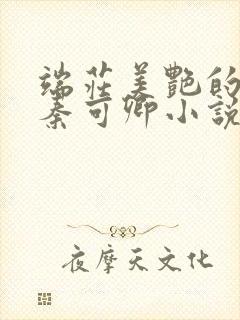 端莊美艷的
秦可卿小說
夜摩天文化